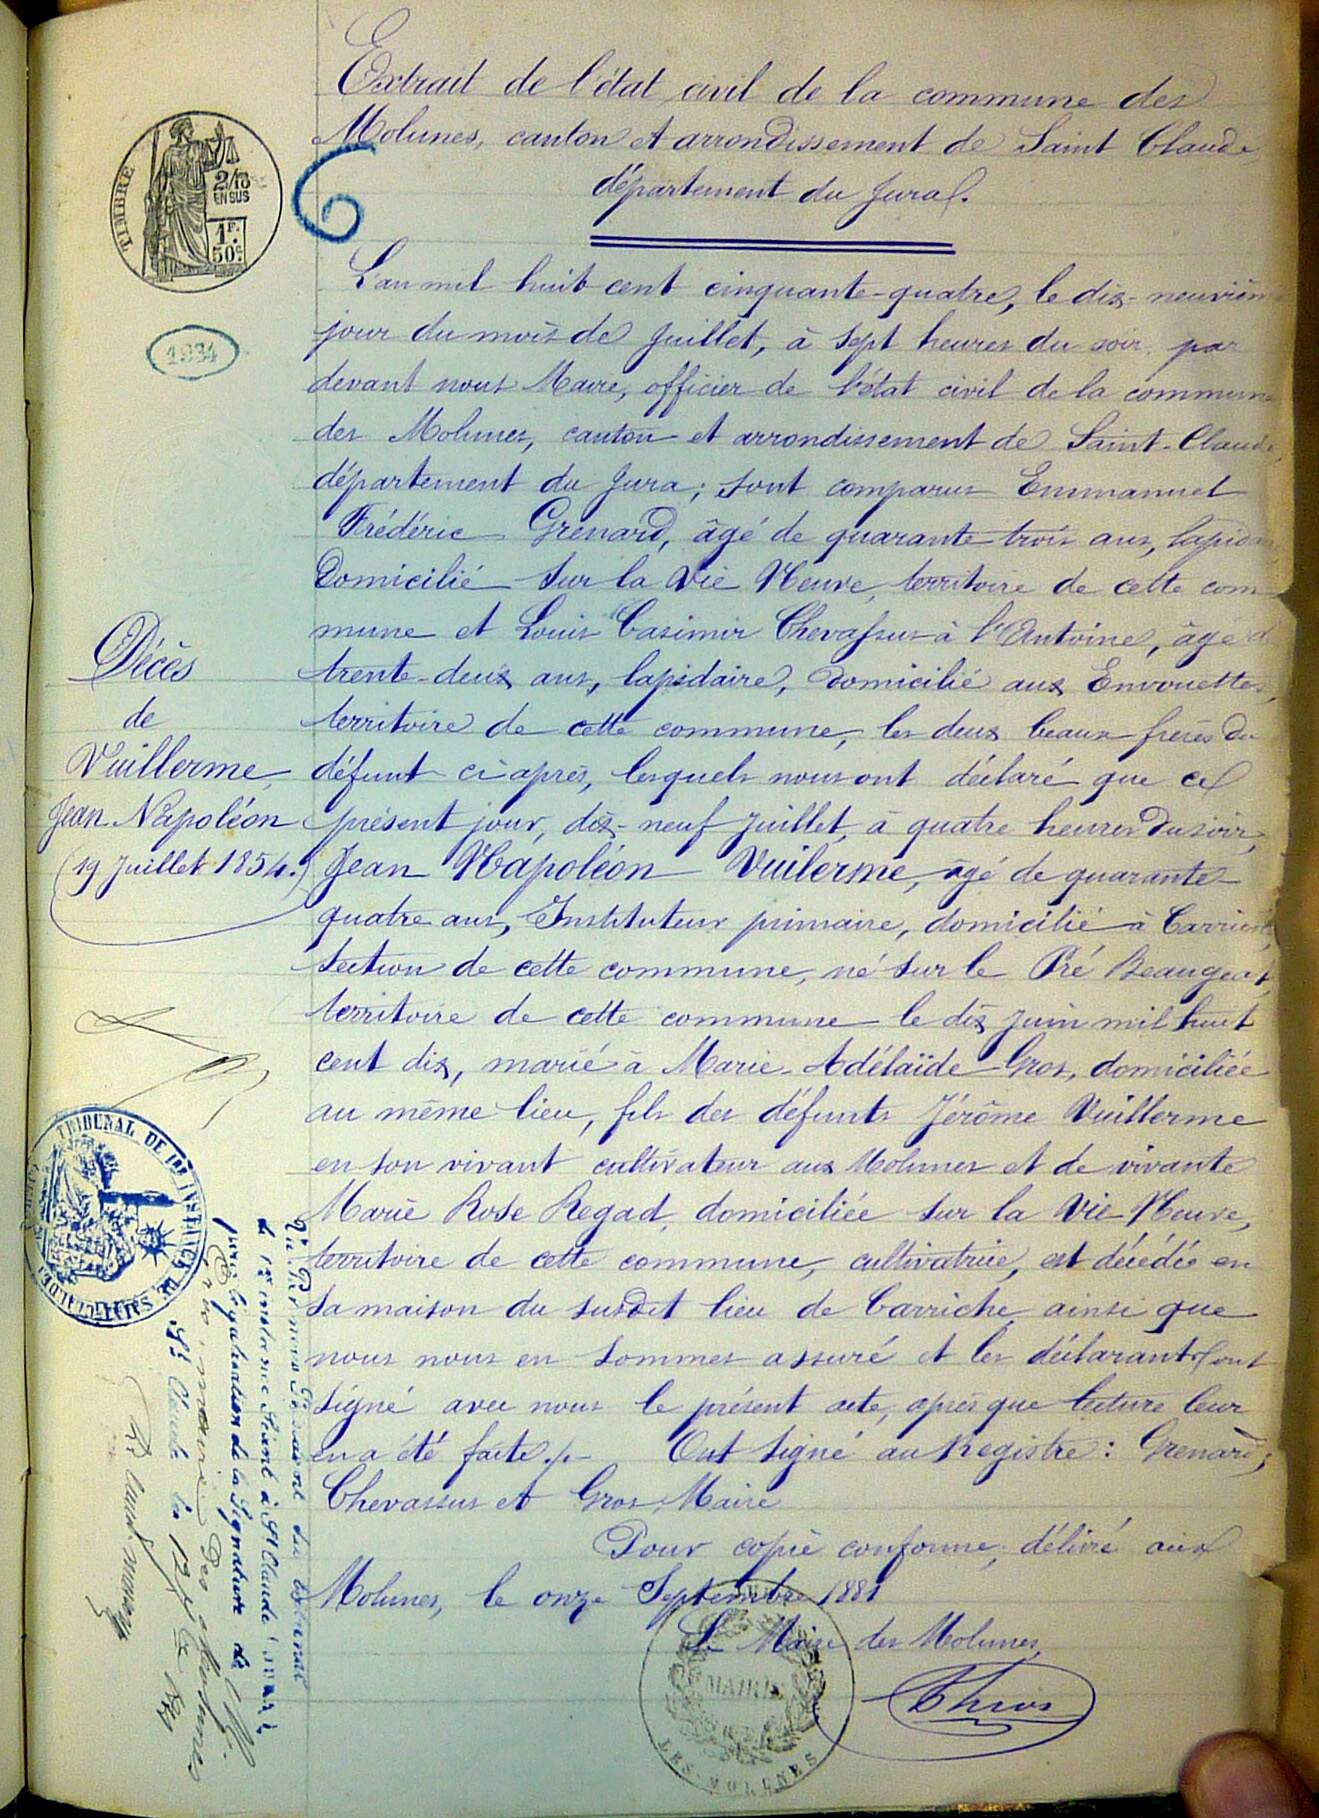 Extrait de l'état civil de la commune des
Molunes, canton et arrondissement de Saint Claude,
département du Jura.
TIMBRE
2/10
EN SUS
1F.
50c
6
1934
L'an mil huit cent cinquante-quatre, le dix-neuvième
jour du mois de Juillet, à sept heures du soir, par
devant nous Maire, officier de l'état civil de la commune
des Molunes, canton et arrondissement de Saint-Claude,
département du Jura; sont comparus Emmanuel
Frédéric Grenard, âgé de quarante trois ans, lapidaire
domicilié sur la Vie Neuve, territoire de cette com
mune et Louis Casimir Chevassus à l'Antoine, âgé de
trente-deux ans, lapidaire, domicilié aux Envouettes,
territoire de cette commune, les deux beaux frères du
défunt ci après, lesquels nous ont déclaré que ce
présent jour, dix-neuf Juillet, à quatre heures du soir,
Jean Napoléon Vuilerme, âgé de quarante
quatre ans, Instituteur primaire, domicilié à
section de cette commune, né sur le Pré Beaugeat,
territoire de cette commune le dix Juin mil huit
cent dix, marié à Marie-Adélaïde Gros, domiciliée
au même lieu, fils des défunts Jérôme Vuillerme
en son vivant cultivateur aux Molunes et de vivante
Marie Rose Regad, domiciliée sur la Vie Neuve,
territoire de cette commune, cultivatrice, est décédé en
sa maison du susdit lieu de Carriche ainsi que
nous nous en sommes assuré et les déclarants ont
signé avec nous le présent acte, après que lecture leur
en a été faite./. Ont signé au Registre: Grenard,
Chevassus et Gros Maire
Pour copie conforme, délivré aux
Molunes, le onze Septembre 1881
Le Maire des Molunes,
MAIRIE
LES MOLUNES
Décès
de
Vuillerme
Jean Napoléon
(19 Juillet 1854.)
TRIBUNAL DE 1re INSTANCE DE SAINT-CLAUDE
du tribunal
de 1re instance séant à St Claude
pour légalisation de la Signature de M.
maire des Molunes
St Claude le